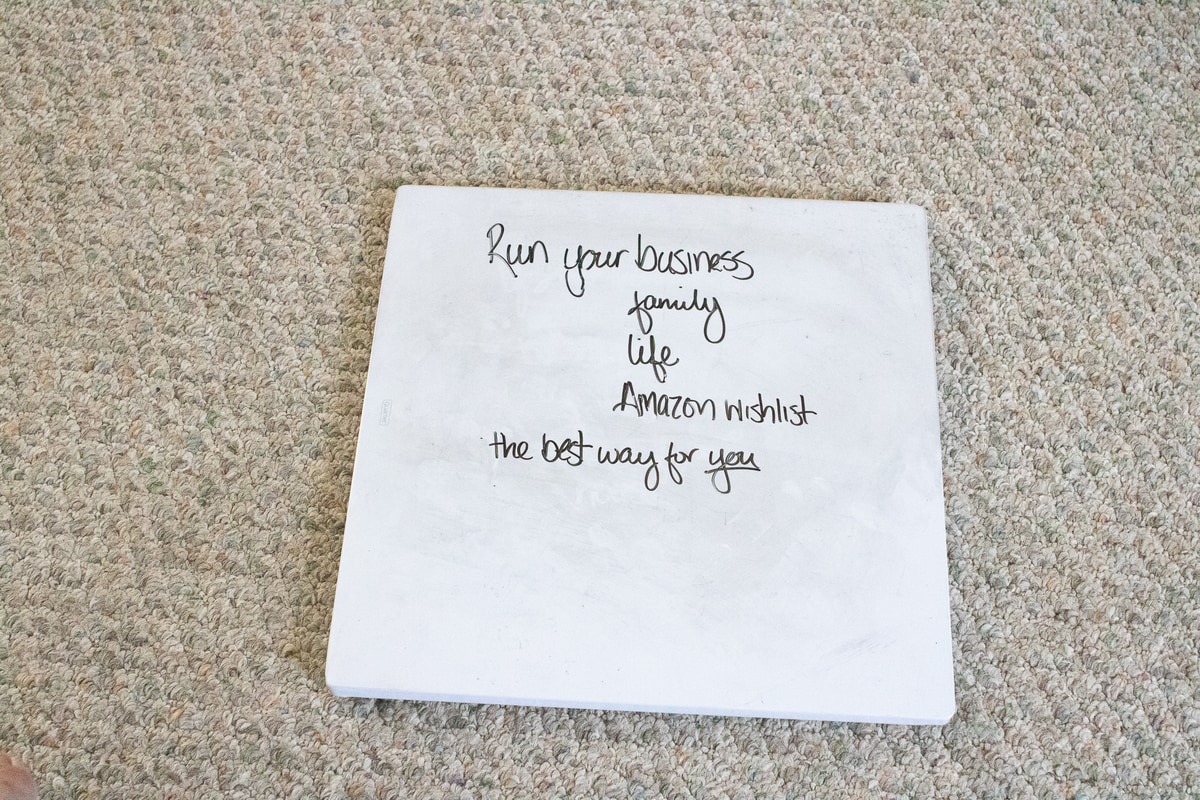 Run your business
family
life
Amazon wishlist
the best way for you